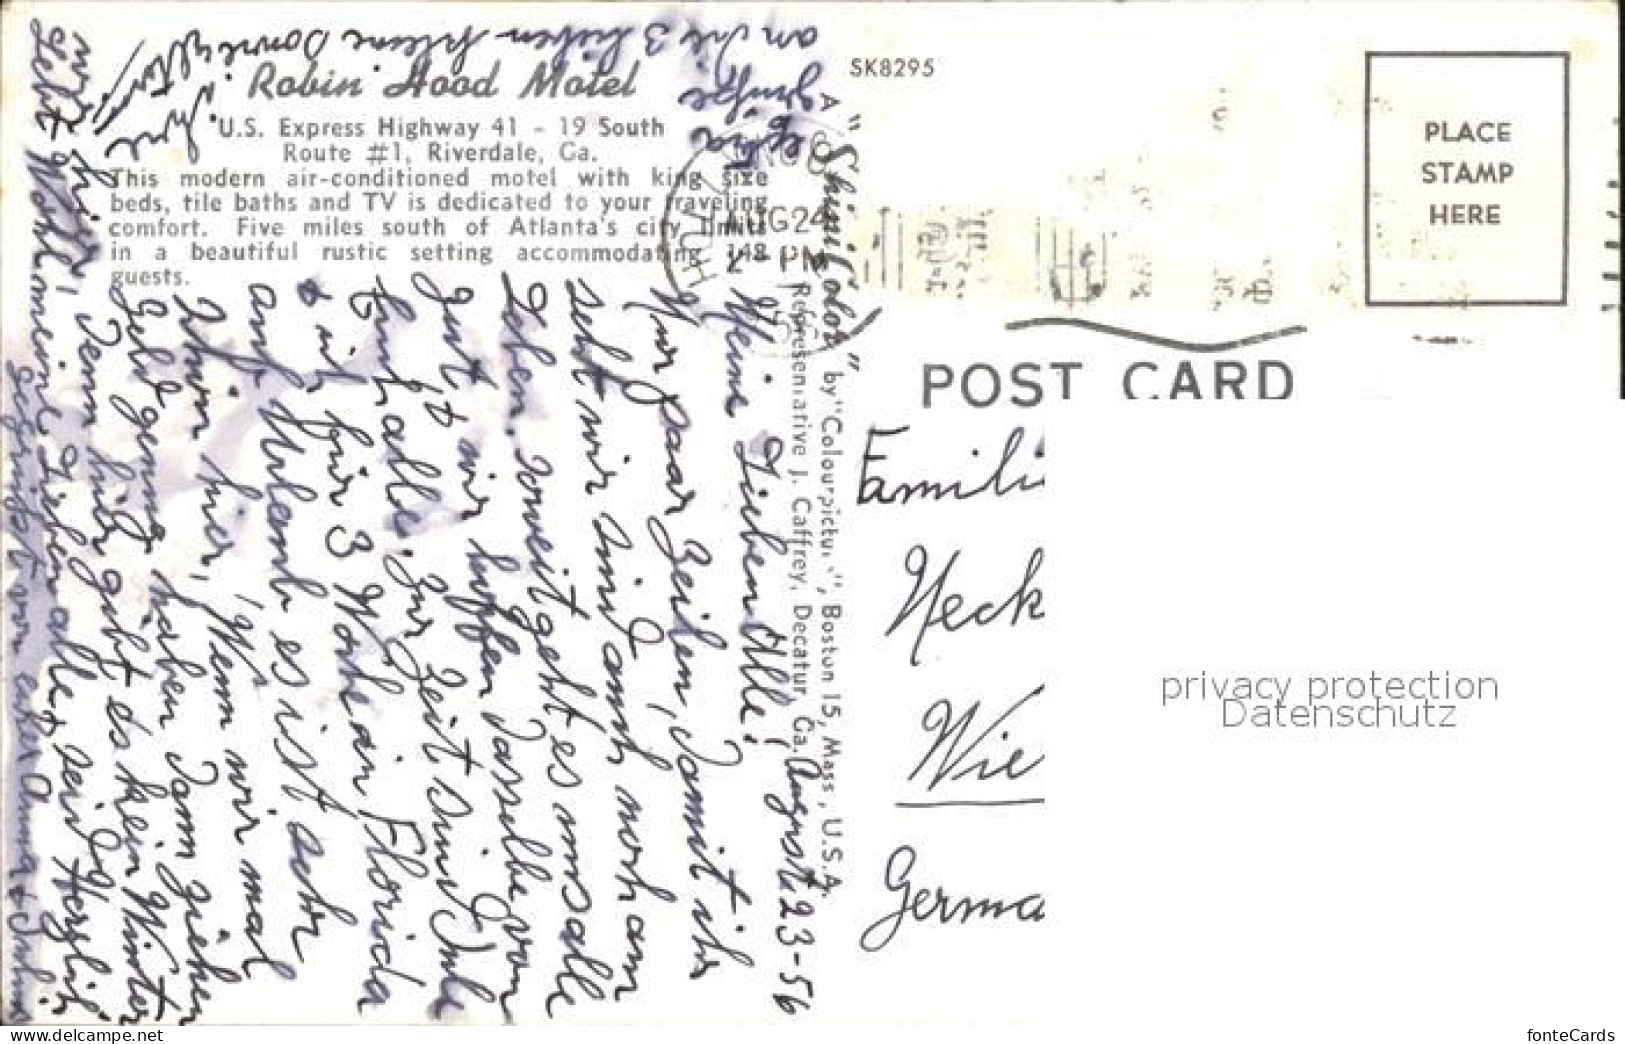 Robin Hood Motel
U.S. Express Highway 41 - 19 South
Route #1, Riverdale, Ga.
This modern air-conditioned motel with king size
beds, tile baths and TV is dedicated to your traveling
comfort. Five miles south of Atlanta's city limits
in a beautiful rustic setting accommodating 148
guests.
SK8295
A "ShiniColor" by "Colourpicture", Boston 15, Mass., U.S.A.
Representative J. Caffrey, Decatur, Ga.
PLACE
STAMP
HERE
POST CARD
AUG 24
August 23-56
Meine Lieben Alle!
Nur paar Zeilen, damit ihr
seht wir sind auch noch am
Leben. Soweit geht es uns alle
gut, wir hoffen dasselbe von
Euch alle. Zur Zeit sind
& ich für 3 Wochen in Florida
auf Urlaub es ist sehr
schön hier, Wenn wir mal
Geld genug haben dann ziehen
wir hier, denn hier gibt es kein Winter
Lebt Wohl meine Lieben alle, seid Herzlich
gegrüßt von eurer Anna &
extra
Grüße
an die 3 lieben
Famili
Heck
Wie
Germa
privacy protection
Datenschutz
fonteCards